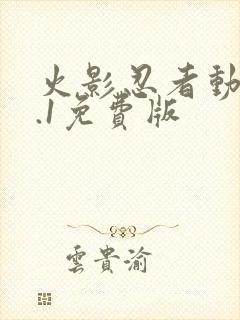 火影忍者動
.1免費版
雲貴渝